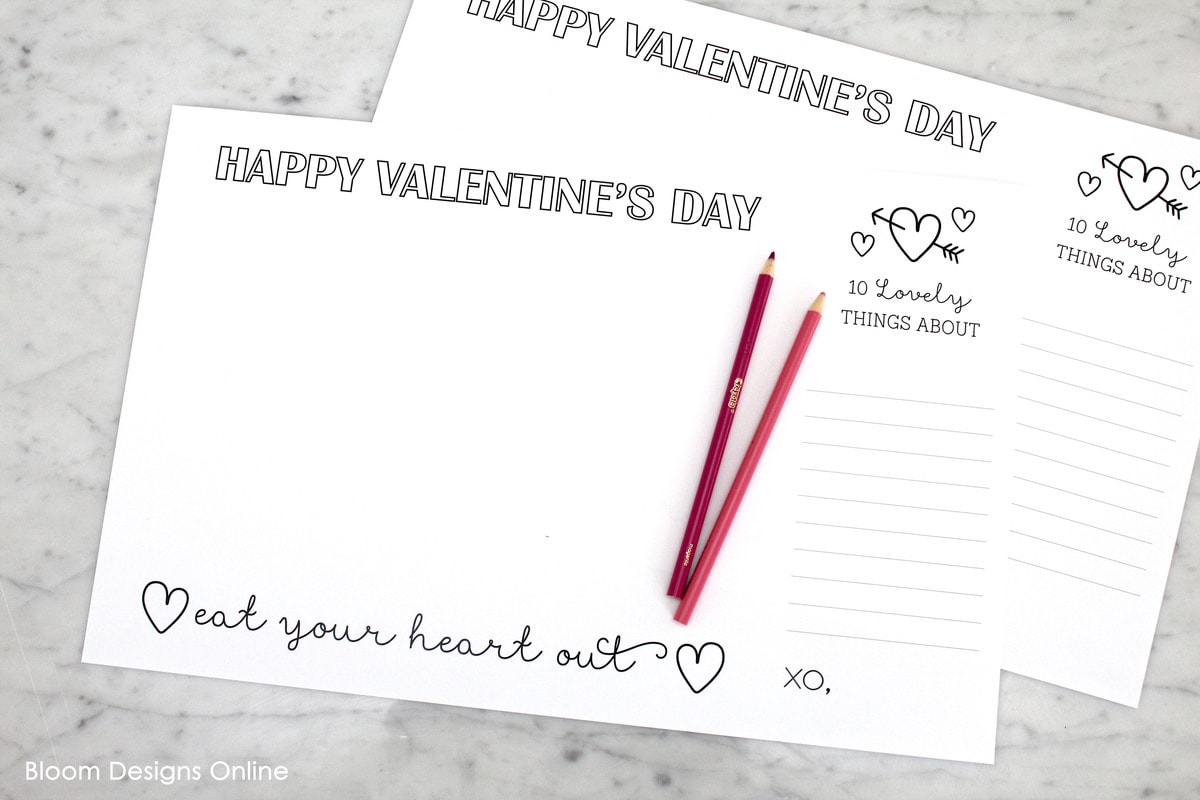 HAPPY VALENTINE'S DAY
10 Lovely
THINGS ABOUT
HAPPY VALENTINE'S DAY
10 Lovely
THINGS ABOUT
Crayola
eat your heart out
XO,
Bloom Designs Online